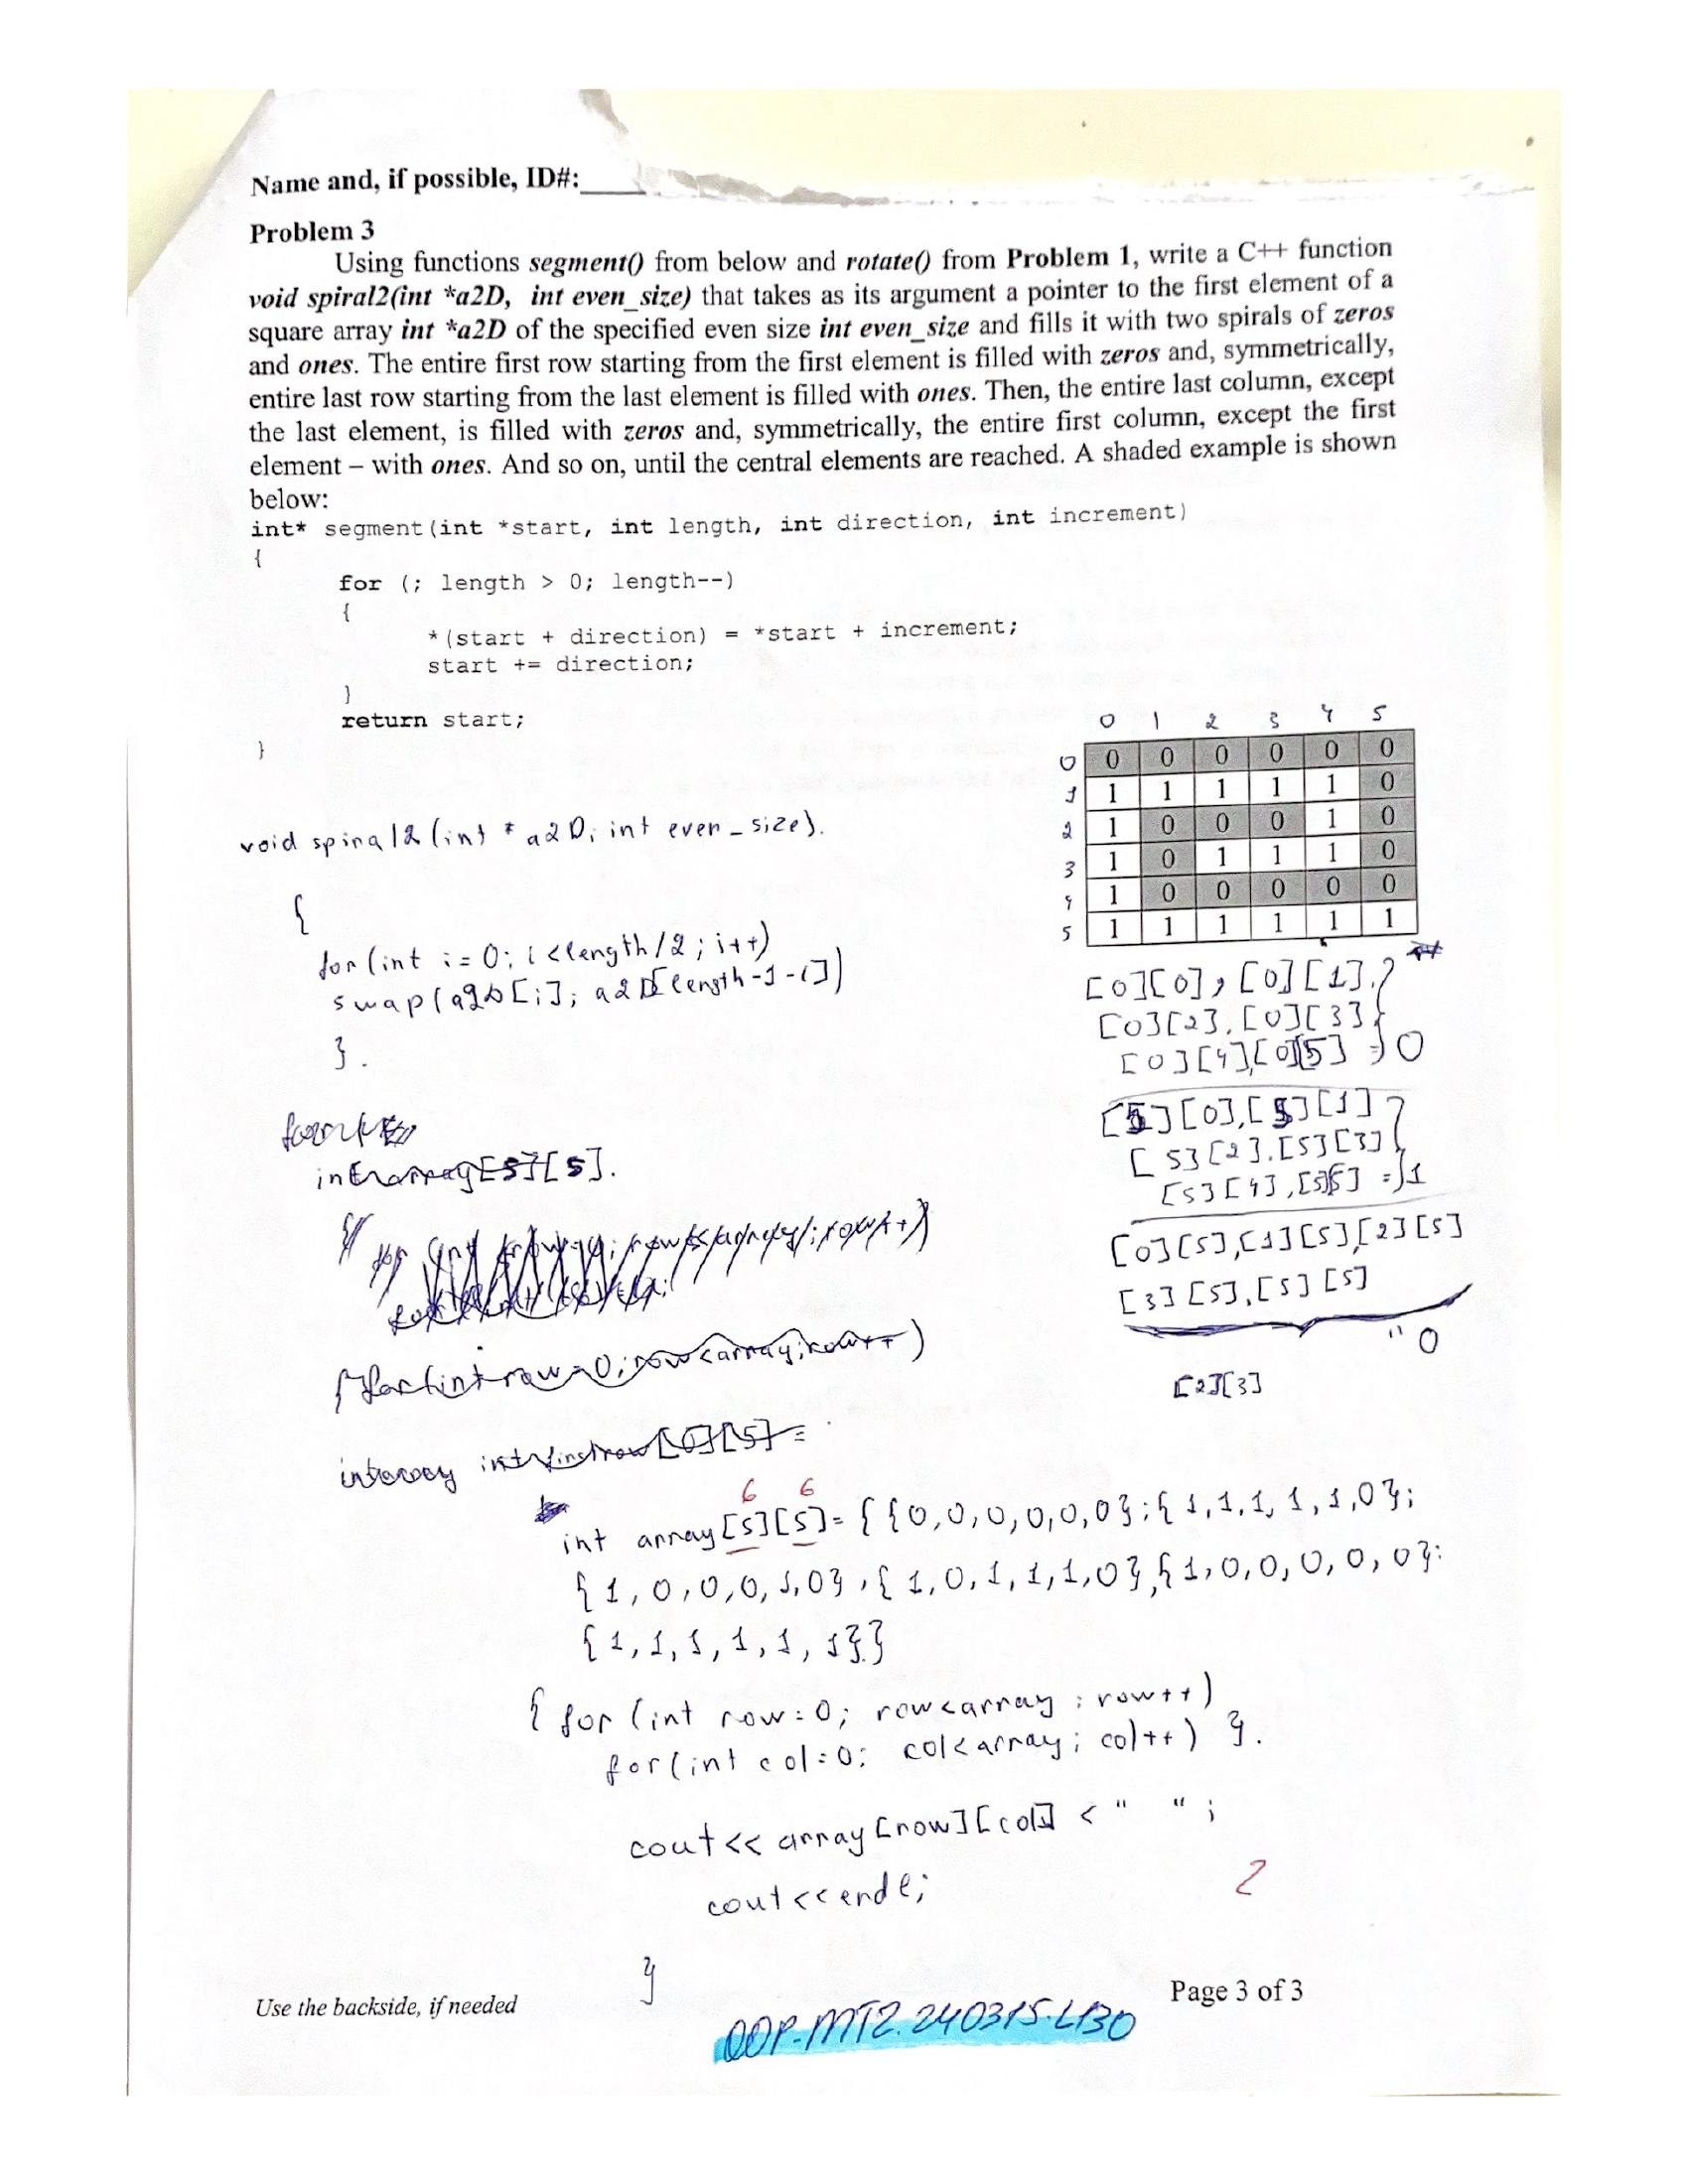 Name and, if possible, ID#:
Problem 3
Using functions segment() from below and rotate() from Problem 1, write a C++ function
void spiral2(int *a2D, int even_size) that takes as its argument a pointer to the first element of a
square array int *a2D of the specified even size int even_size and fills it with two spirals of zeros
and ones. The entire first row starting from the first element is filled with zeros and, symmetrically,
entire last row starting from the last element is filled with ones. Then, the entire last column, except
the last element, is filled with zeros and, symmetrically, the entire first column, except the first
element – with ones. And so on, until the central elements are reached. A shaded example is shown
below:
int* segment(int *start, int length, int direction, int increment)
{
for (; length > 0; length--)
{
*(start + direction) = *start + increment;
start += direction;
}
return start;
}
0 1 2 3 4 5
0 0 0 0 0 0 0
1 1 1 1 1 1 0
2 1 0 0 0 1 0
3 1 0 1 1 1 0
4 1 0 0 0 0 0
5 1 1 1 1 1 1
void spiral2(int * a2D; int even_size).
{
for(int i=0; i<length/2; i++)
swap(a2D[i]; a2D[length-1-i])
}.
[0][0], [0][1],
[0][2], [0][3]
[0][4],[0][5] = 0
[5][0],[5][1]
[5][2].[5][3]
[5][4],[5][5] = 1
[0][5],[1][5],[2][5]
[3][5],[5][5]
" 0
[2][3]
int array[5][5].
for(int row=0; row<array; row++)
int firstrow[0][5]=
6 6
int array[5][5]={{0,0,0,0,0,0};{1,1,1,1,1,0};
{1,0,0,0,1,0},{1,0,1,1,1,0},{1,0,0,0,0,0}:
{1,1,1,1,1,1}}
{ for (int row=0; row<array; row++)
for(int col=0; col<array; col++) }.
cout<< array[row][col] < " ";
cout<<endl;
2
}
Use the backside, if needed
Page 3 of 3
OOP-MT2.240315.L130